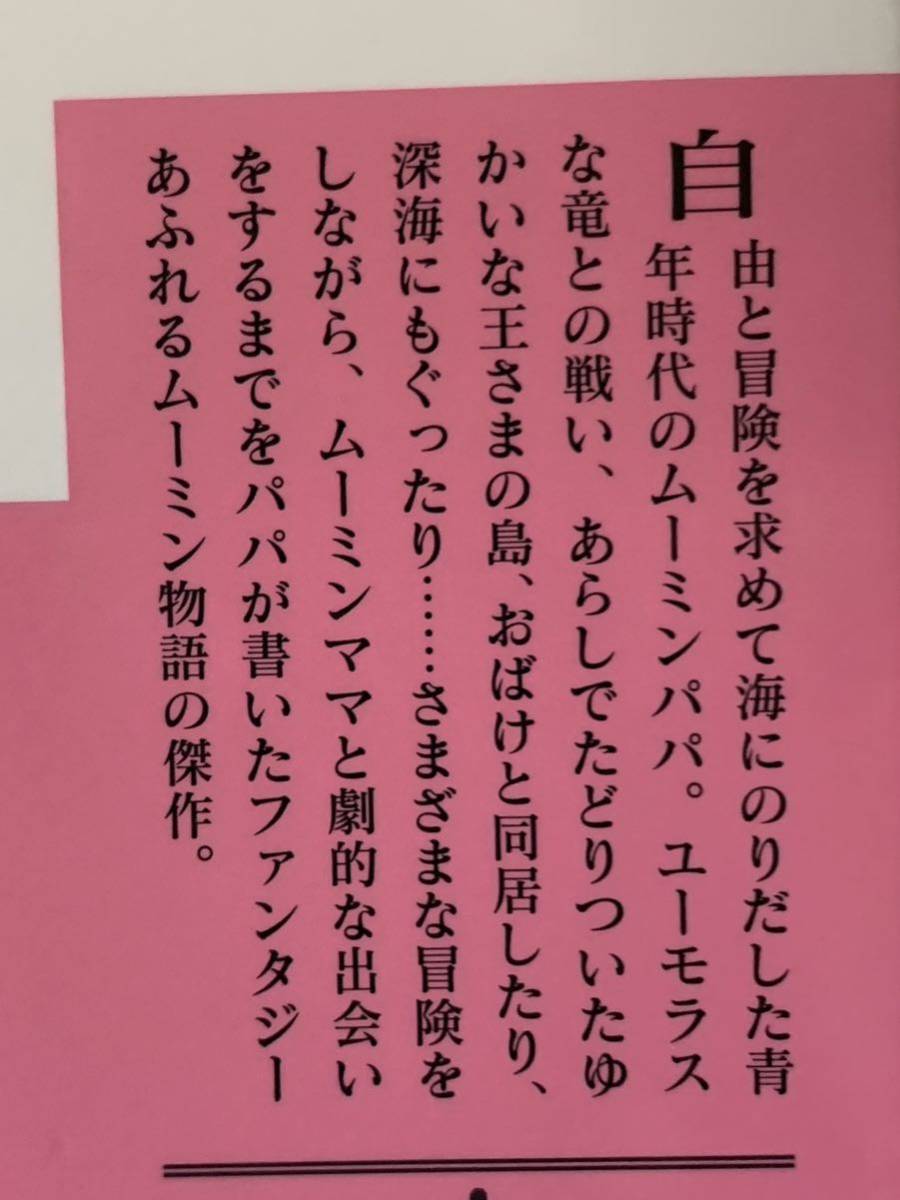 自由と冒険を求めて海にのりだした青
年時代のムーミンパパ。ユーモラス
な竜との戦い、あらしでたどりついたゆ
かいな王さまの島、おばけと同居したり、
深海にもぐったり……さまざまな冒険を
しながら、ムーミンママと劇的な出会い
をするまでをパパが書いたファンタジー
あふれるムーミン物語の傑作。